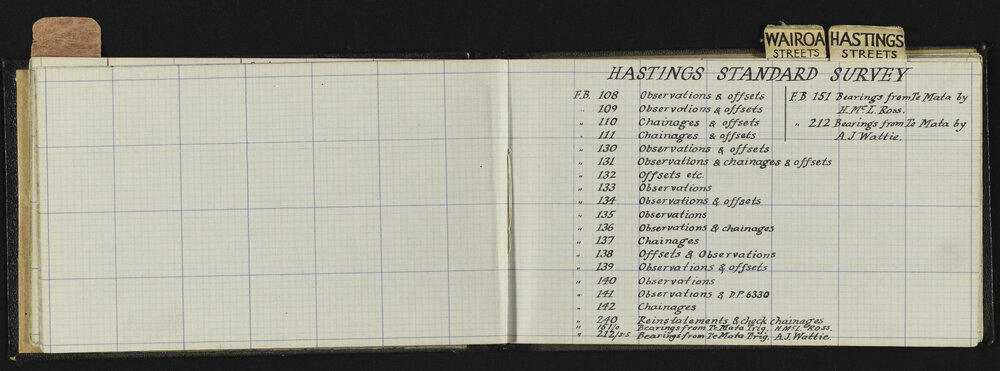 WAIROA
STREETS
HASTINGS
STREETS
HASTINGS STANDARD SURVEY
F.B. 108 Observations & offsets
" 109 Observations & offsets
" 110 Chainages & offsets
" 111 Chainages & offsets
" 130 Observations & offsets
" 131 Observations & chainages & offsets
" 132 Offsets etc.
" 133 Observations
" 134 Observations & offsets
" 135 Observations
" 136 Observations & chainages
" 137 Chainages
" 138 Offsets & Observations
" 139 Observations & offsets
" 140 Observations
" 141 Observations & D.P. 6330
" 142 Chainages
" 240 Reinstatements & check chainages
" 151/0 Bearings from Te Mata Trig. H.McL. Ross.
" 212/3-5 Bearings from Te Mata Trig. A.J. Wattie.
F.B. 151 Bearings from Te Mata by
H.McL. Ross.
" 212 Bearings from Te Mata by
A.J. Wattie.